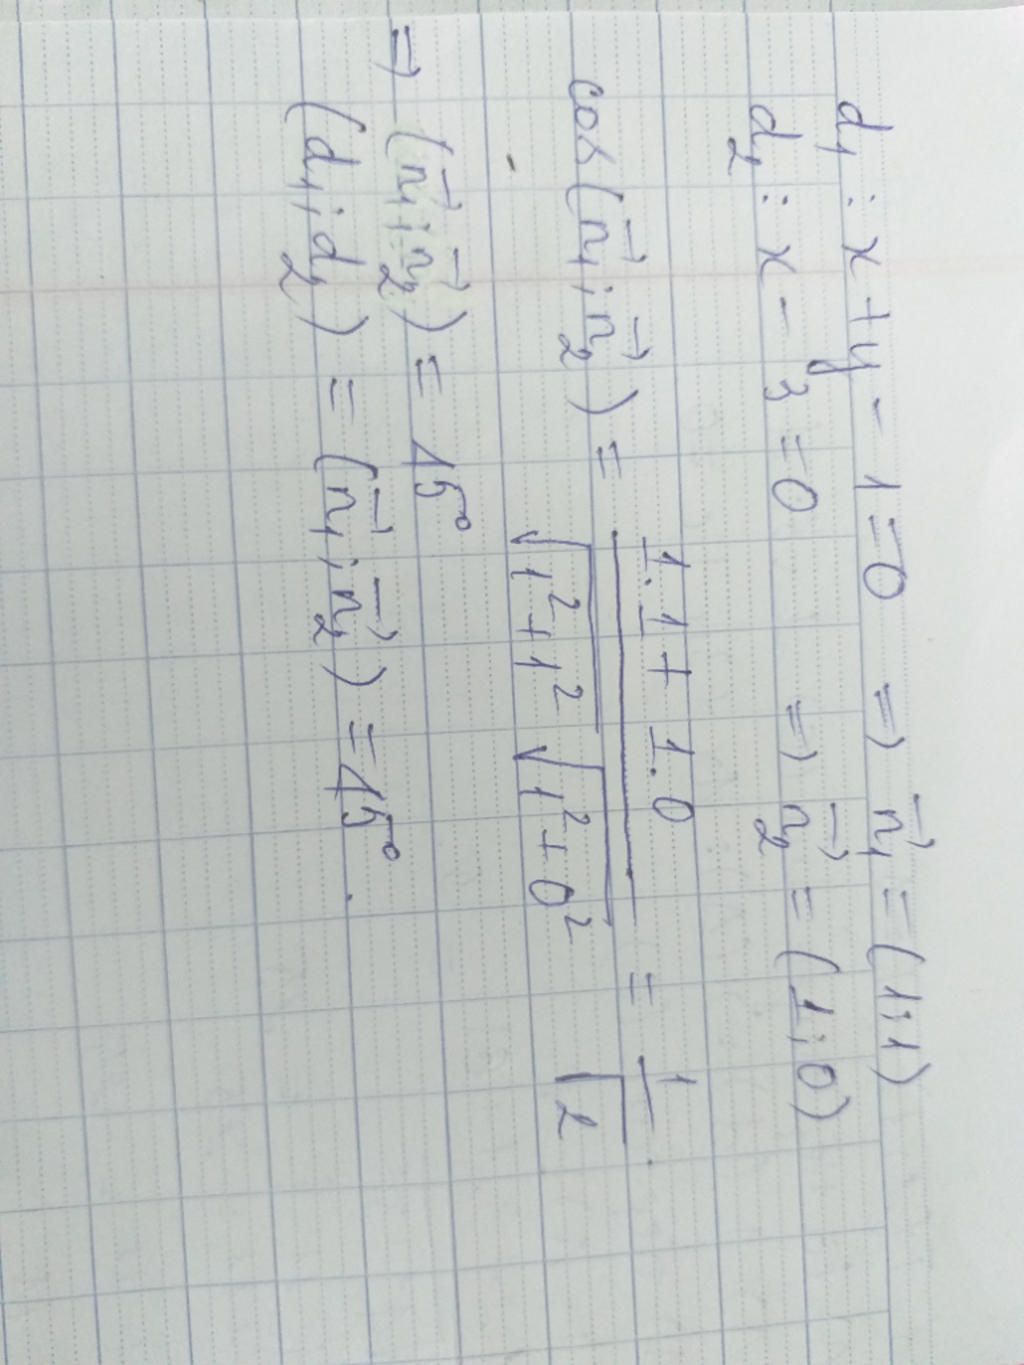 d₁ : x + y - 1 = 0 ⇒ n₁→ = (1; 1)
d₂ : x - 3 = 0 ⇒ n₂→ = (1; 0)
cos(n₁→; n₂→) = (1.1 + 1.0) / (√(1² + 1²) √(1² + 0²)) = 1/√2
⇒ (n₁→; n₂→) = 45°
(d₁; d₂) = (n₁→; n₂→) = 45°.